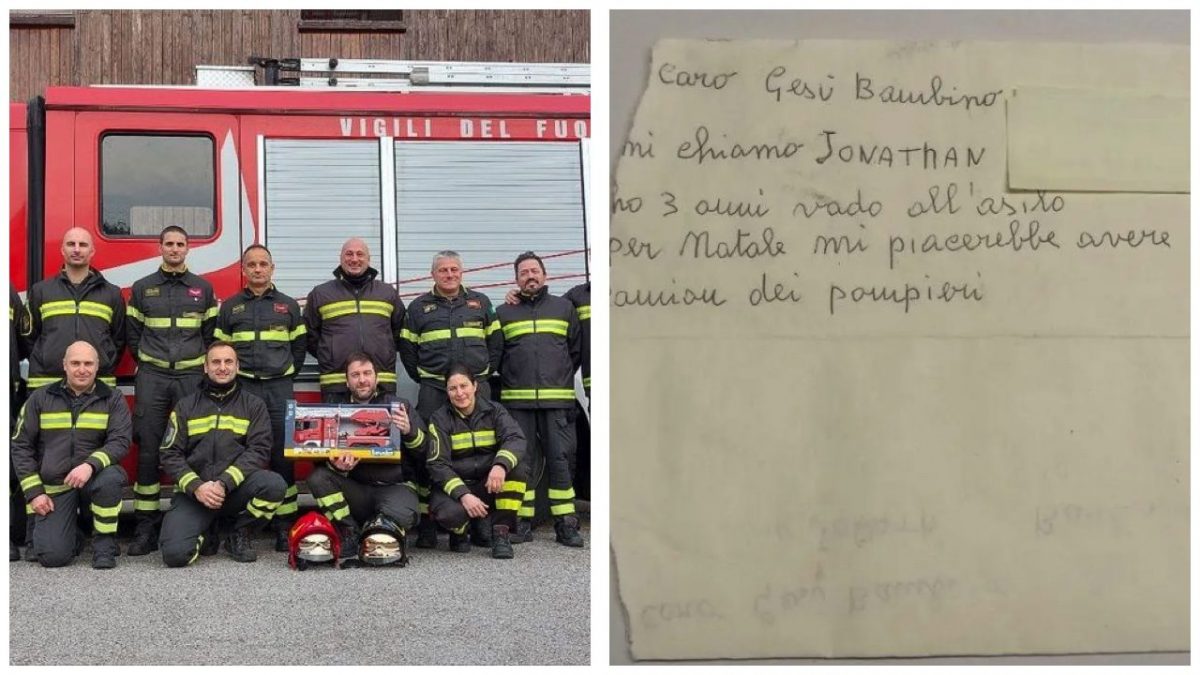 VIGILI DEL FUO
bruder
Caro Gesù Bambino
mi chiamo JONATHAN
ho 3 anni vado all'asilo
per Natale mi piacerebbe avere
camion dei pompieri